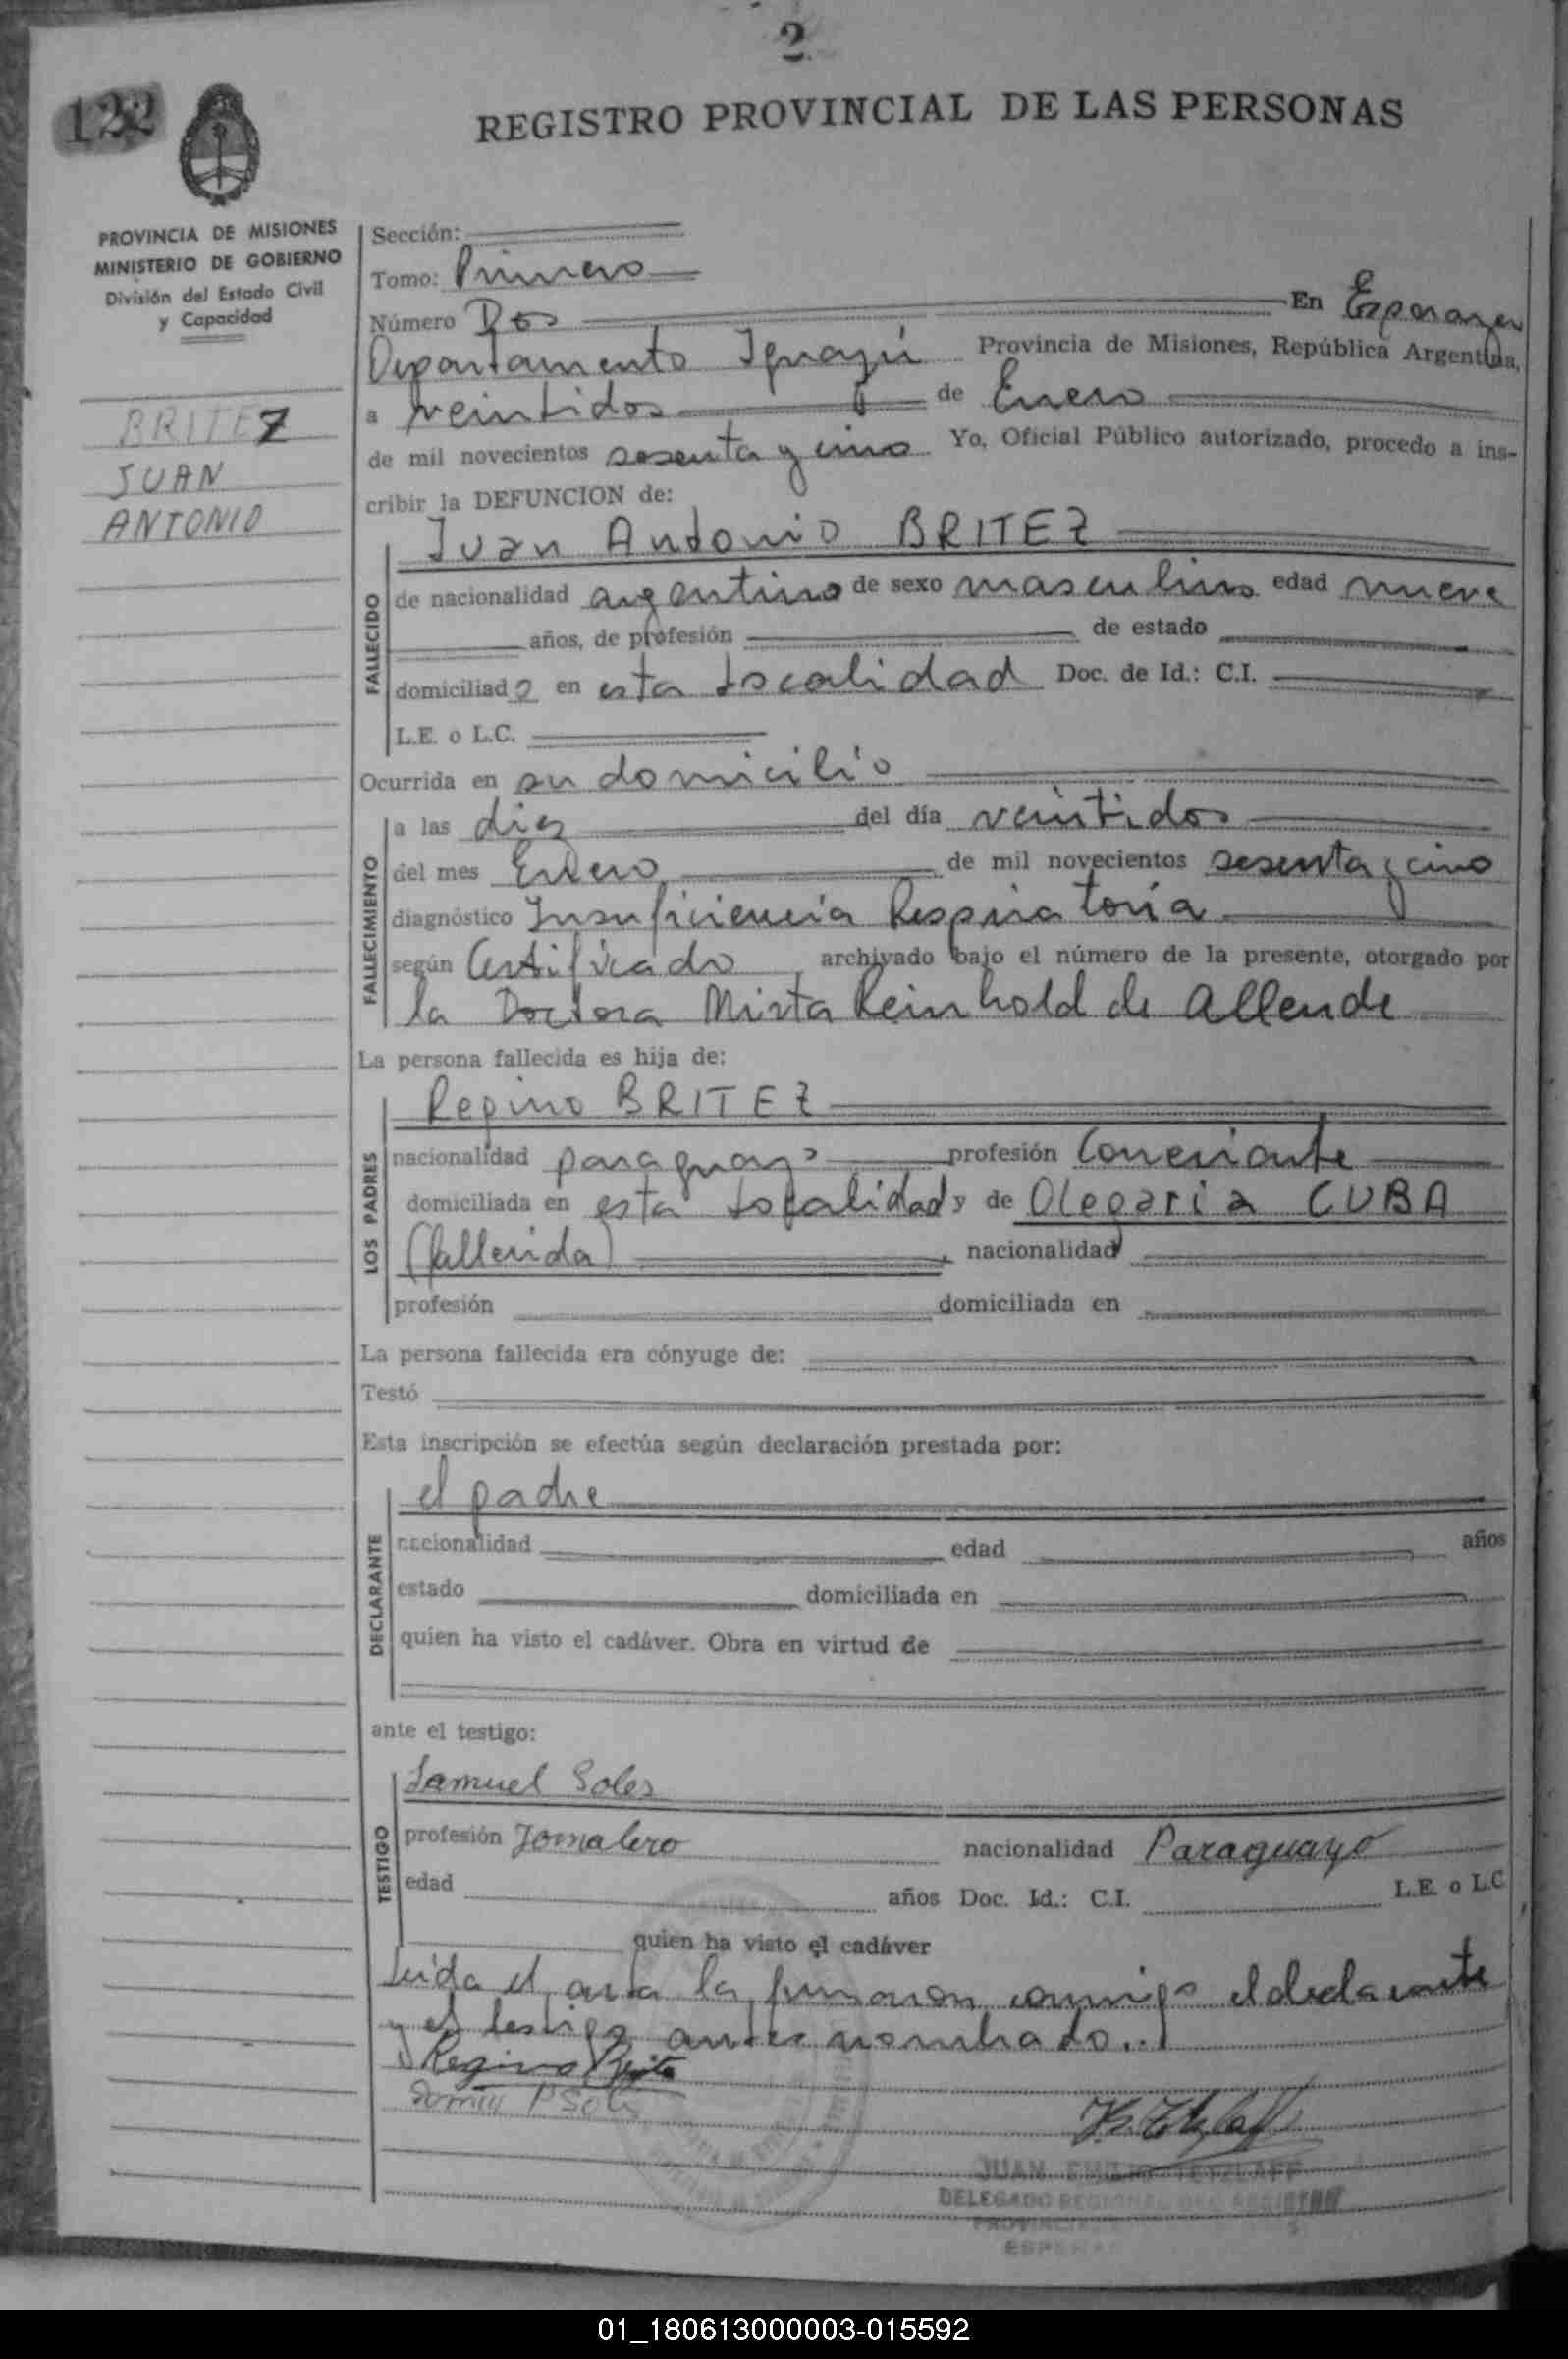 2
122
REGISTRO PROVINCIAL DE LAS PERSONAS
PROVINCIA DE MISIONES
MINISTERIO DE GOBIERNO
División del Estado Civil
y Capacidad
BRITEZ
JUAN
ANTONIO
Sección:
Tomo: Primero
Número Dos En Esperanza
Departamento Iguazú Provincia de Misiones, República Argentina,
a veintidos de Enero
de mil novecientos sesenta y cinco Yo, Oficial Público autorizado, procedo a ins-
cribir la DEFUNCION de:
Juan Antonio BRITEZ
FALLECIDO
de nacionalidad argentino de sexo masculino edad nueve
años, de profesión de estado
domiciliado en esta localidad Doc. de Id.: C.I.
L.E. o L.C.
Ocurrida en su domicilio
FALLECIMIENTO
a las diez del día veintidos
del mes Enero de mil novecientos sesenta y cinco
diagnóstico Insuficiencia Respiratoria
según Certificado, archivado bajo el número de la presente, otorgado por
la Doctora Mirta Reinhold de Allende
La persona fallecida es hija de:
LOS PADRES
Regino BRITEZ
nacionalidad paraguayo profesión
domiciliada en esta localidad y de Olegaria CUBA
(fallecida), nacionalidad
profesión domiciliada en
La persona fallecida era cónyuge de:
Testó
Esta inscripción se efectúa según declaración prestada por:
DECLARANTE
el padre
nacionalidad edad años
estado domiciliada en
quien ha visto el cadáver. Obra en virtud de
ante el testigo:
TESTIGO
Samuel Soles
profesión Jornalero nacionalidad Paraguayo
edad años Doc. Id.: C.I. L.E. o L.C
quien ha visto el cadáver
Leida el acta la firmaron conmigo el declarante
y el testigo antes nombrado..
Regino Brite
JUAN EMILIO TETZLAFF
DELEGADO REGIONAL DEL REGISTRO
01_180613000003-015592